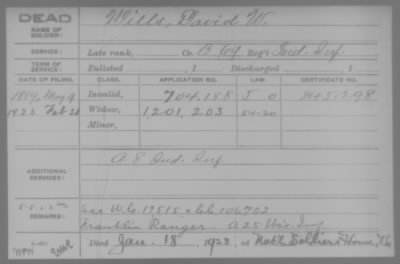 DEAD
NAME OF SOLDIER: Wills, David W.
SERVICE: Late rank, Co. B 109 Reg't Ind. Inf
TERM OF SERVICE: Enlisted , 1 Discharged , 1
DATE OF FILING. CLASS. APPLICATION NO. LAW. CERTIFICATE NO.
1889, May 9 Invalid, 704.188
1923 Feb Widow, 1201.203
Minor,
ADDITIONAL SERVICES: A 8 Ind. Inf
REMARKS: W.C. 19815 106702
Franklin Ranger. A 25 Wis Inf
Died Jan. 18, 1923, at Nat'l Soldiers Home,